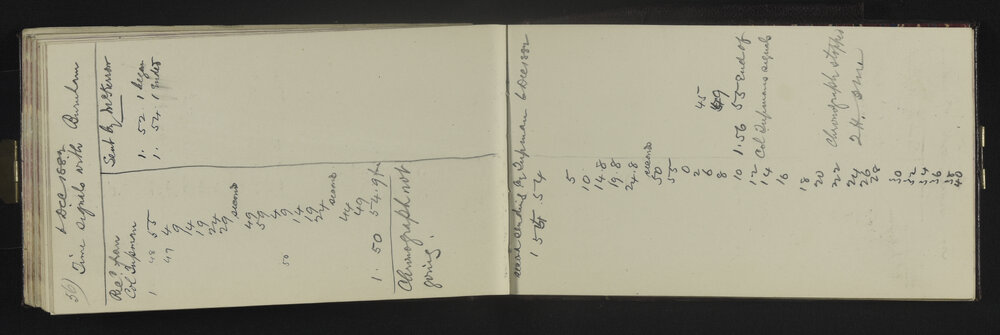 56) 6 Dec 1882
Time signals with Burnham
Rec'd from
Col Tupman
Sent by McKerrow
1. 52. 1 began
1. 54. 1 ended
1 48 55
49 4
9
14
19
24
29
second
49
59
4
9
50 14
19
24
second
44
49
1. 50 54.9
Chronograph not
going.
second sending by Tupman 6 Dec 1882
1 54 54
5
10
14.8
19.8
24.8
second
50
55
0
2
6
8
45
1.56 55 end of
Col Tupmans signals
10
12
14
16
18
20
22
24
26
28
30
32
34
36
38
40
Chronograph stopps
2 H. one